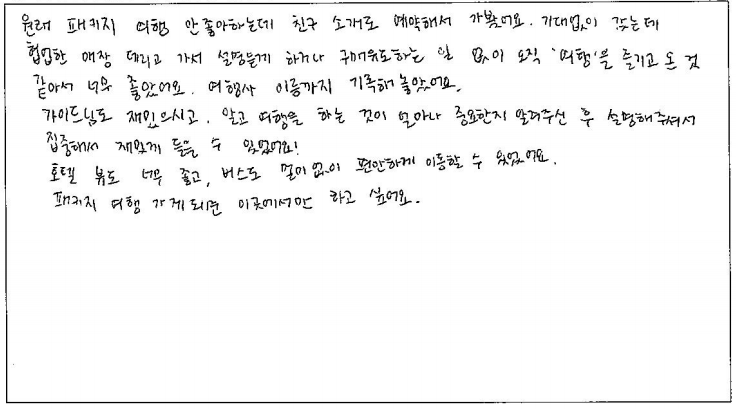 원래 패키지 여행 안좋아하는데 친구 소개로 예약해서 가봤어요. 기대없이 갔는데
협업한 매장 데리고 가서 설명듣게 하거나 구매유도하는 일 없이 오직 '여행'을 즐기고 온 것
같아서 너무 좋았어요. 여행사 이름까지 기록해 놓았어요.
가이드님도 재밌으시고, 알고 여행을 하는 것이 얼마나 중요한지 알려주신 후 설명해주셔서
집중해서 재밌게 들을 수 있었어요!
호텔 뷰도 너무 좋고, 버스도 멀미없이 편안하게 이동할 수 있었어요.
패키지 여행 가게되면 이곳에서만 하고 싶어요.